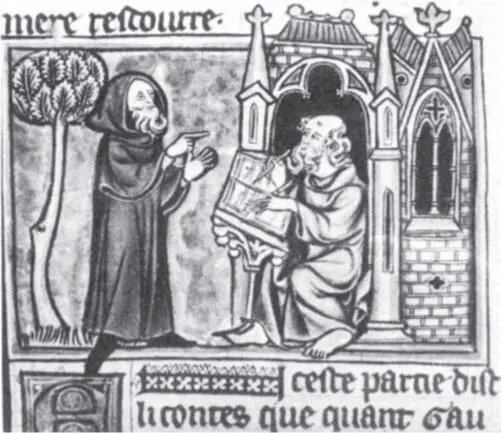 mere rescourre.
E
J ceste partie dist
li contes que quant Gau